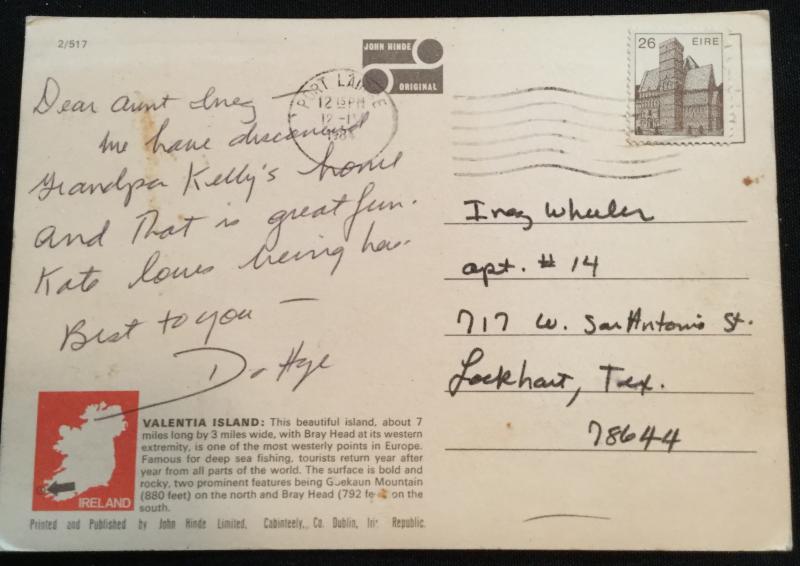 2/517
JOHN HINDE
ORIGINAL
PORT
12 15 PM
12-
198
26 EIRE
Dear Aunt Inez —
We have discovered
Grandpa Kelly's home
and that is great fun.
Kate loves being
Best to you —
Inez Wheeler
apt. # 14
717 W. San Antonio St.
Lockhart, Tex.
78644
VALENTIA ISLAND: This beautiful island, about 7
miles long by 3 miles wide, with Bray Head at its western
extremity, is one of the most westerly points in Europe.
Famous for deep sea fishing, tourists return year after
year from all parts of the world. The surface is bold and
rocky, two prominent features being Geokaun Mountain
(880 feet) on the north and Bray Head (792 feet) on the
south.
IRELAND
Printed and Published by John Hinde Limited, Cabinteely, Co. Dublin, Irish Republic.